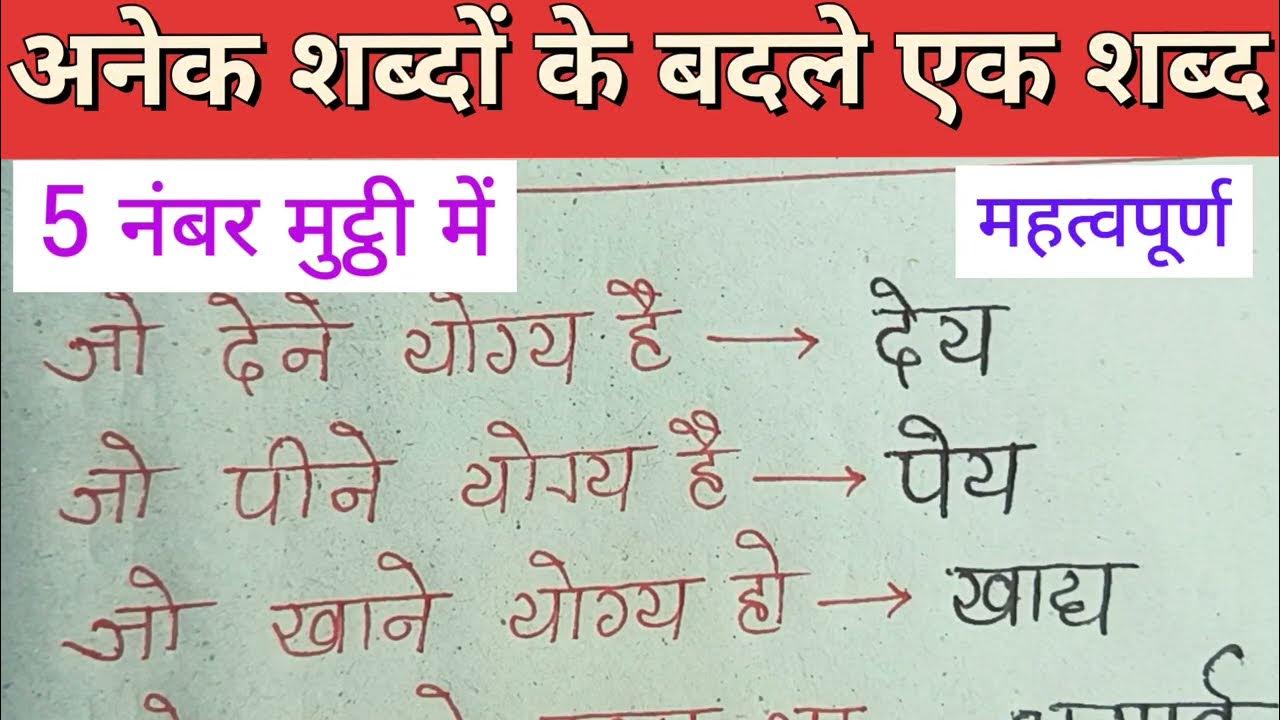 अनेक शब्दों के बदले एक शब्द
5 नंबर मुट्ठी में
महत्वपूर्ण
जो देने योग्य है → देय
जो पीने योग्य है → पेय
जो खाने योग्य हो → खाद्य